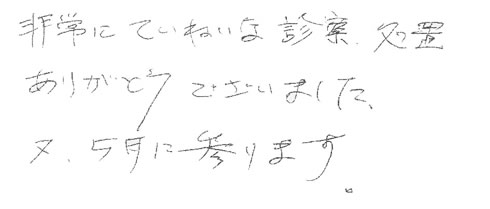 非常にていねいな診察、処置
ありがとうございました、
又、5月に参ります。